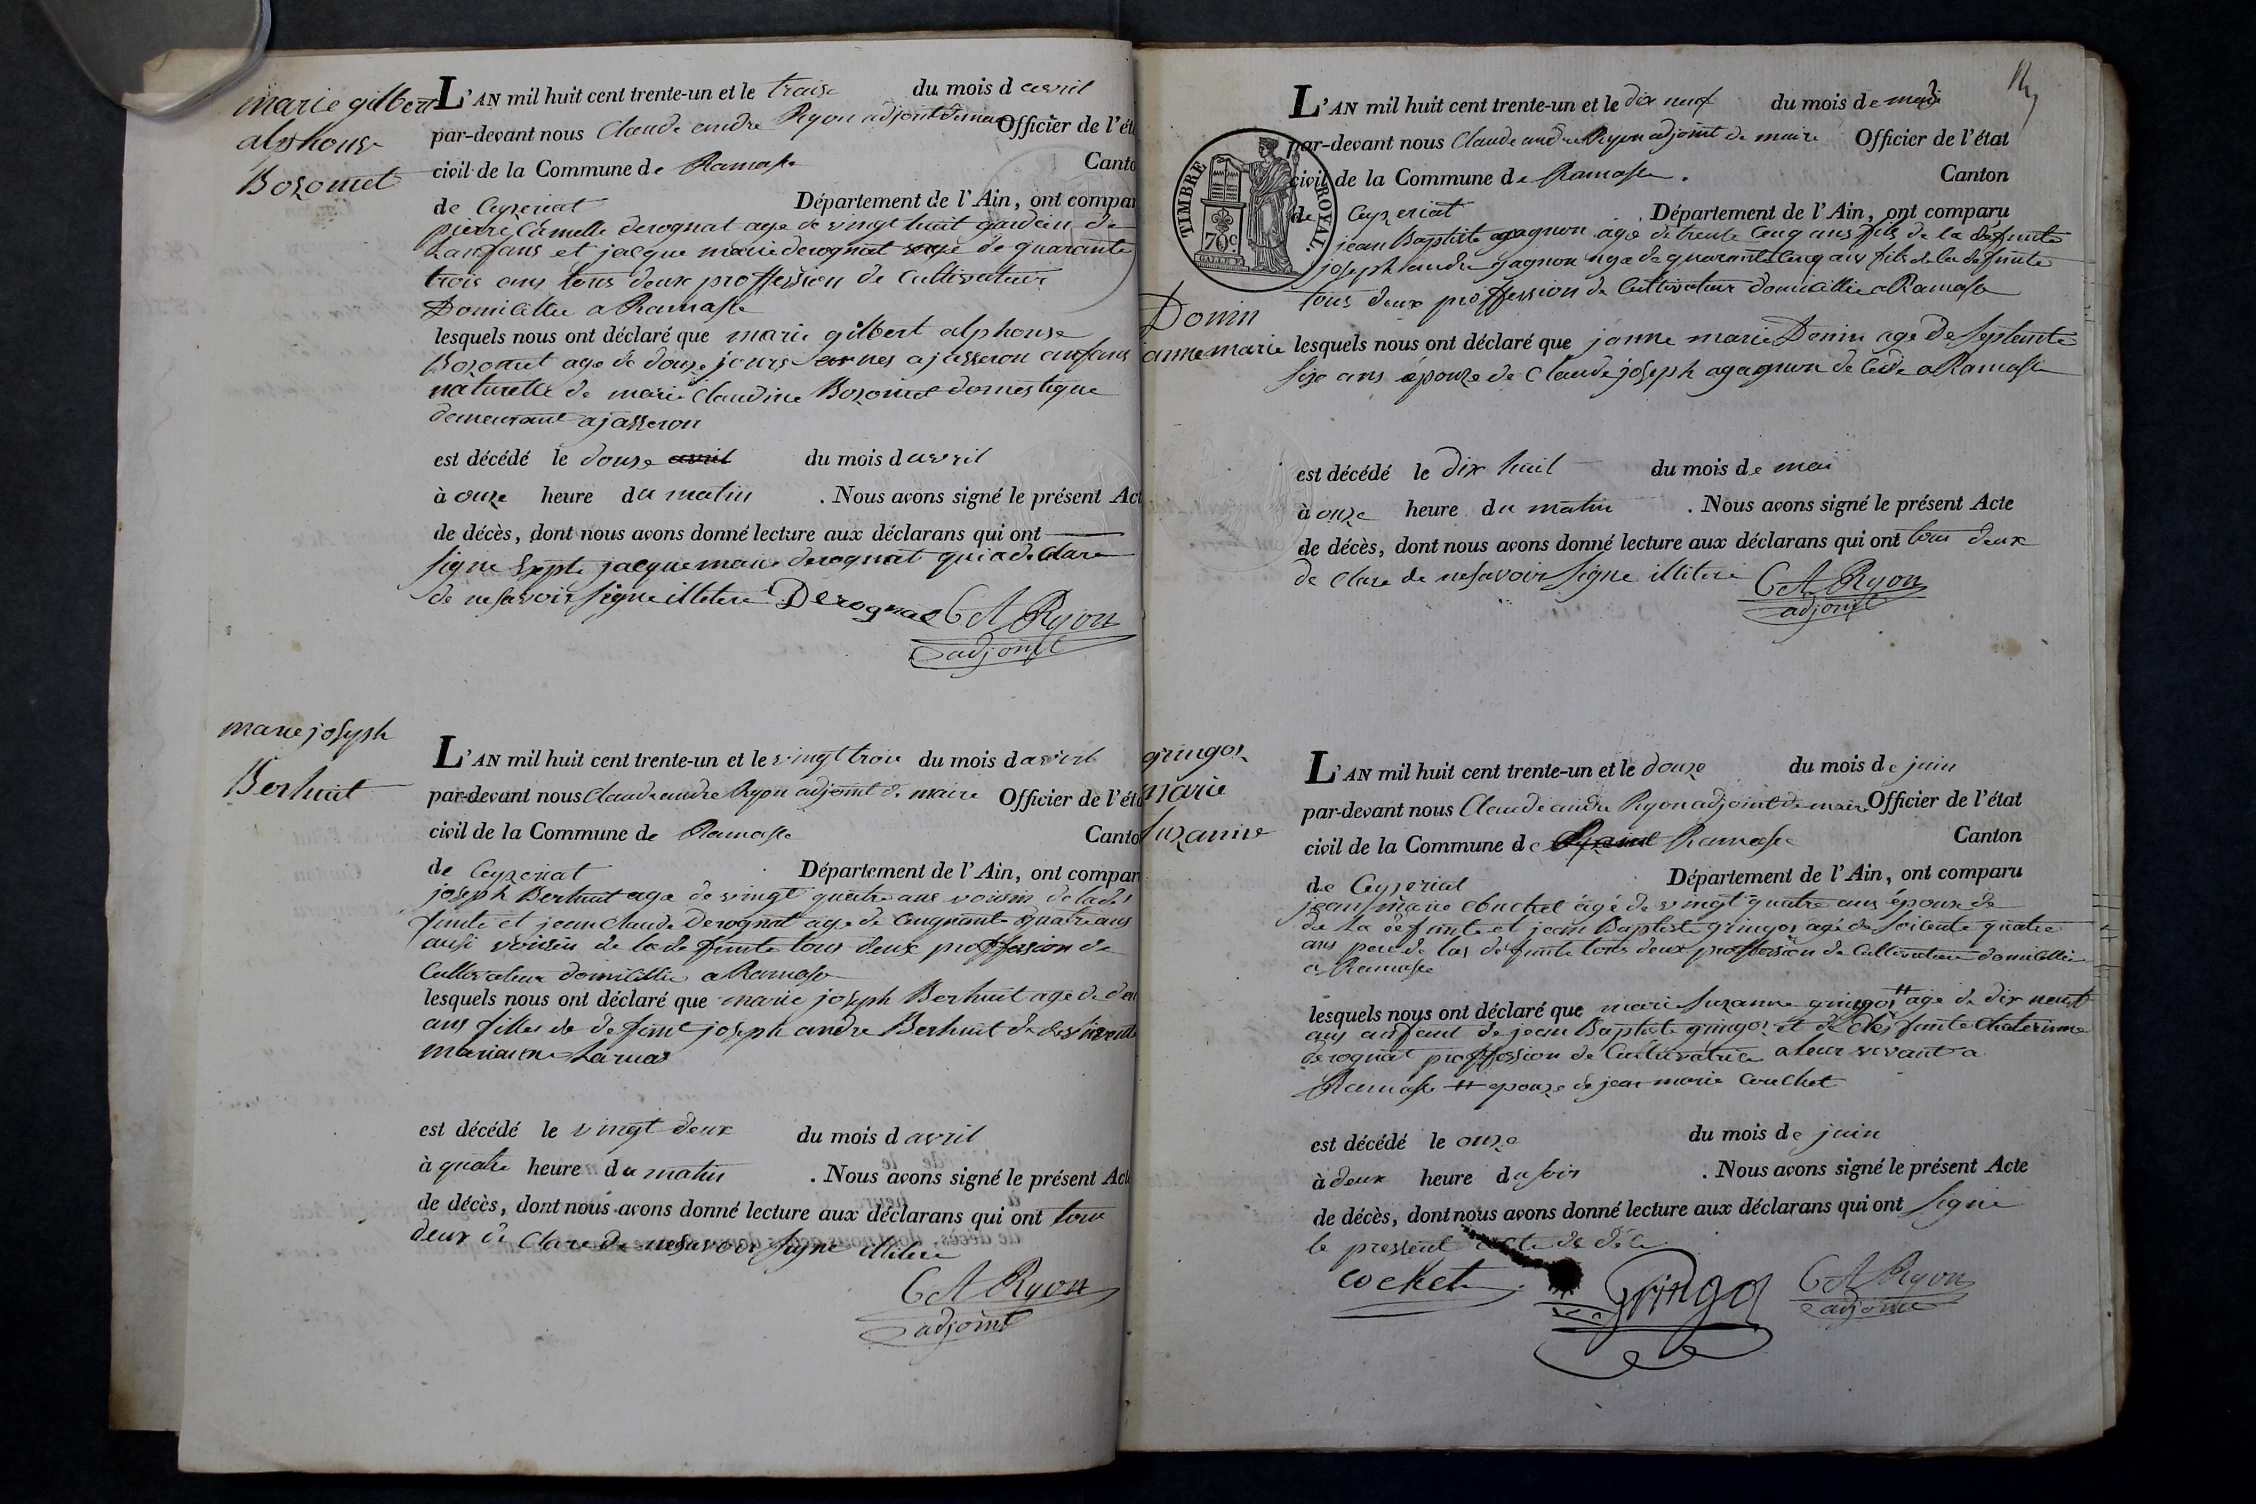 marie gilbert
alphonse
Bozonet
L'AN mil huit cent trente-un et le treise du mois d avril
par-devant nous Claude andre Ryon adjoint de maire Officier de l'éta
civil de la Commune de Ramasse Canto
de Ceyzeriat Département de l'Ain, ont compar
pierre Camelle derognat age de vingt huit gardein de
lanfans et jacque marie derognat age de quarante
trois ans tous deux proffession de Cultivateur
Domicillie a Ramasse
lesquels nous ont déclaré que marie gilbert alphonse
Bozonet age de douze jours nes a jasseron anfans
naturelle de marie Claudine Bozonet domestique
demeurant a jasseron
est décédé le douse avril du mois d avril
à onze heure du matin . Nous avons signé le présent Act
de décès, dont nous avons donné lecture aux déclarans qui ont
signe septe jacque marie derognat qui a de Clare
de ne savoir signe illitere Derognat C A Ryon
adjoint
marie joseph
Berhuit
L'AN mil huit cent trente-un et le vingt trois du mois d avril
par-devant nous Claude andre Ryon adjoint de maire Officier de l'éta
civil de la Commune de Ramasse Canto
de Ceyzeriat Département de l'Ain, ont compar
joseph Berhuit age de vingt quatre ans voisin de la de
funte et jean claude Derognat age de Cinquante quatre ans
ausi voisin de la de funte tous deux proffession de
Cultivateur domicillie a Ramasse
lesquels nous ont déclaré que marie joseph Berhuit age de deu
ans filles de defunt joseph andre Berhuit de
mariane Larua
est décédé le vingt deux du mois d avril
à quatre heure du matin . Nous avons signé le présent Act
de décès, dont nous avons donné lecture aux déclarans qui ont tous
deux de Clare de ne savoir signe illitere
C A Ryon
adjoint
14
L'AN mil huit cent trente-un et le dix neuf du mois de mai
par-devant nous Claude andre Ryon adjoint de maire Officier de l'état
civil de la Commune de Ramasse. Canton
de Ceyzeriat Département de l'Ain, ont comparu
TIMBRE ROYAL.
70c
jean Baptiste agagnon age de trente cinq ans fils de la defunte
joseph andre gagnon age de quarante cinq ans fils de la defunte
tous deux proffession de Cultivateur domicillie a Ramasse
Donin
anne marie
lesquels nous ont déclaré que janne marie Donin age de septente
size ans épouze de Claude joseph agagnon de Cede a Ramasse
est décédé le dix huit du mois de mai
à onze heure du matin . Nous avons signé le présent Acte
de décès, dont nous avons donné lecture aux déclarans qui ont tous deux
de Clare de ne savoir signe illitere C A Ryon
adjoint
gringoz
marie
suzanne
L'AN mil huit cent trente-un et le douze du mois de juin
par-devant nous Claude andre Ryon adjoint de maire Officier de l'état
civil de la Commune de Ramasse Canton
de Ceyzeriat Département de l'Ain, ont comparu
jean marie Cuchet âgé de vingt quatre ans époux de
de La defunte et jean Baptiste gringoz agé de soisente quatre
ans pere de las defunte tous deux proffession de Cultivateur domicillie
a Ramasse
lesquels nous ont déclaré que marie suzanne gringoz # age de dix neuf
ans anfant de jean Baptiste gringoz et de defunte Chaterinne
derognat proffession de Cultivatrice a leur vivant a
Ramasse # epouze de jean marie Couchet
est décédé le onze du mois de juin
à deux heure du soir . Nous avons signé le présent Acte
de décès, dont nous avons donné lecture aux déclarans qui ont signe
le pressent acte de déce
cocket Gringoz C A Ryon
adjoint